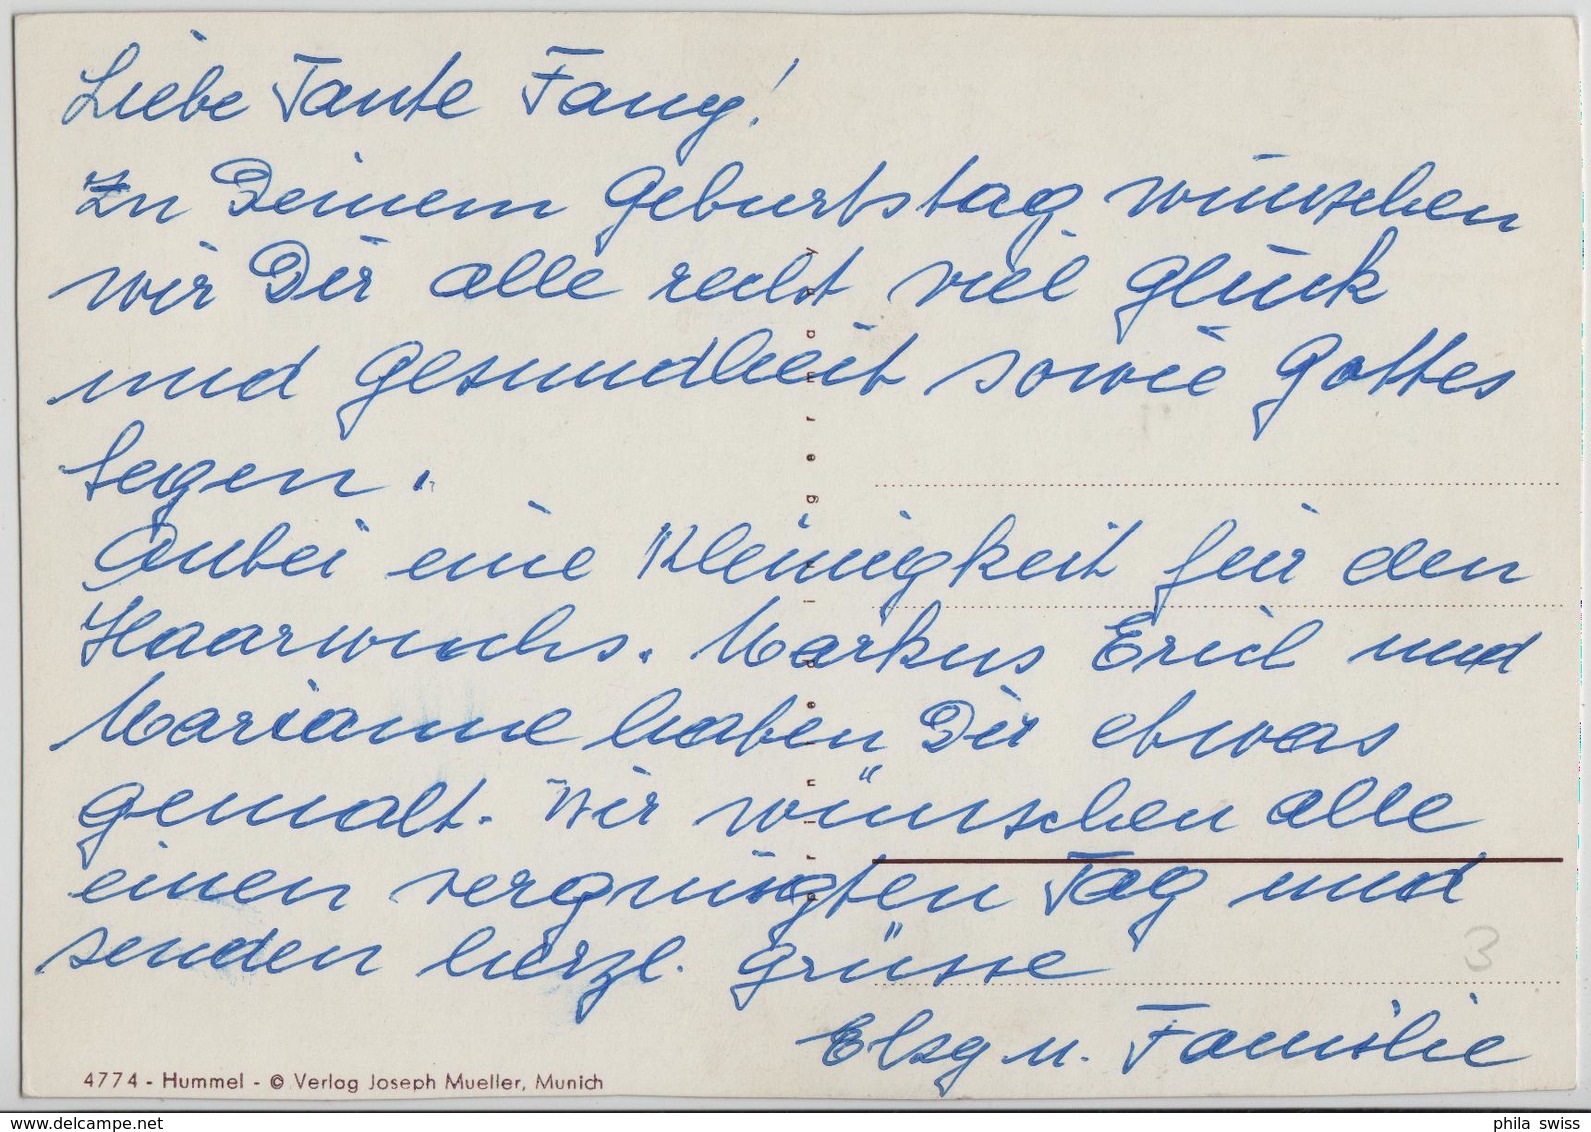 Liebe Tante Fany!
Zu Deinem Geburtstag wünschen
wir Dir alle recht viel Glück
und Gesundheit sowie Gottes
Segen.
Anbei eine Kleinigkeit für den
Haarwuchs. Markus Erich und
Marianne haben Dir etwas
gemalt. Wir wünschen alle
einen vergnügten Tag und
senden herzl. Grüsse
Elsy u. Familie
3
printed in germany
4774 - Hummel - © Verlag Joseph Mueller, Munich
www.delcampe.net
phila_swiss